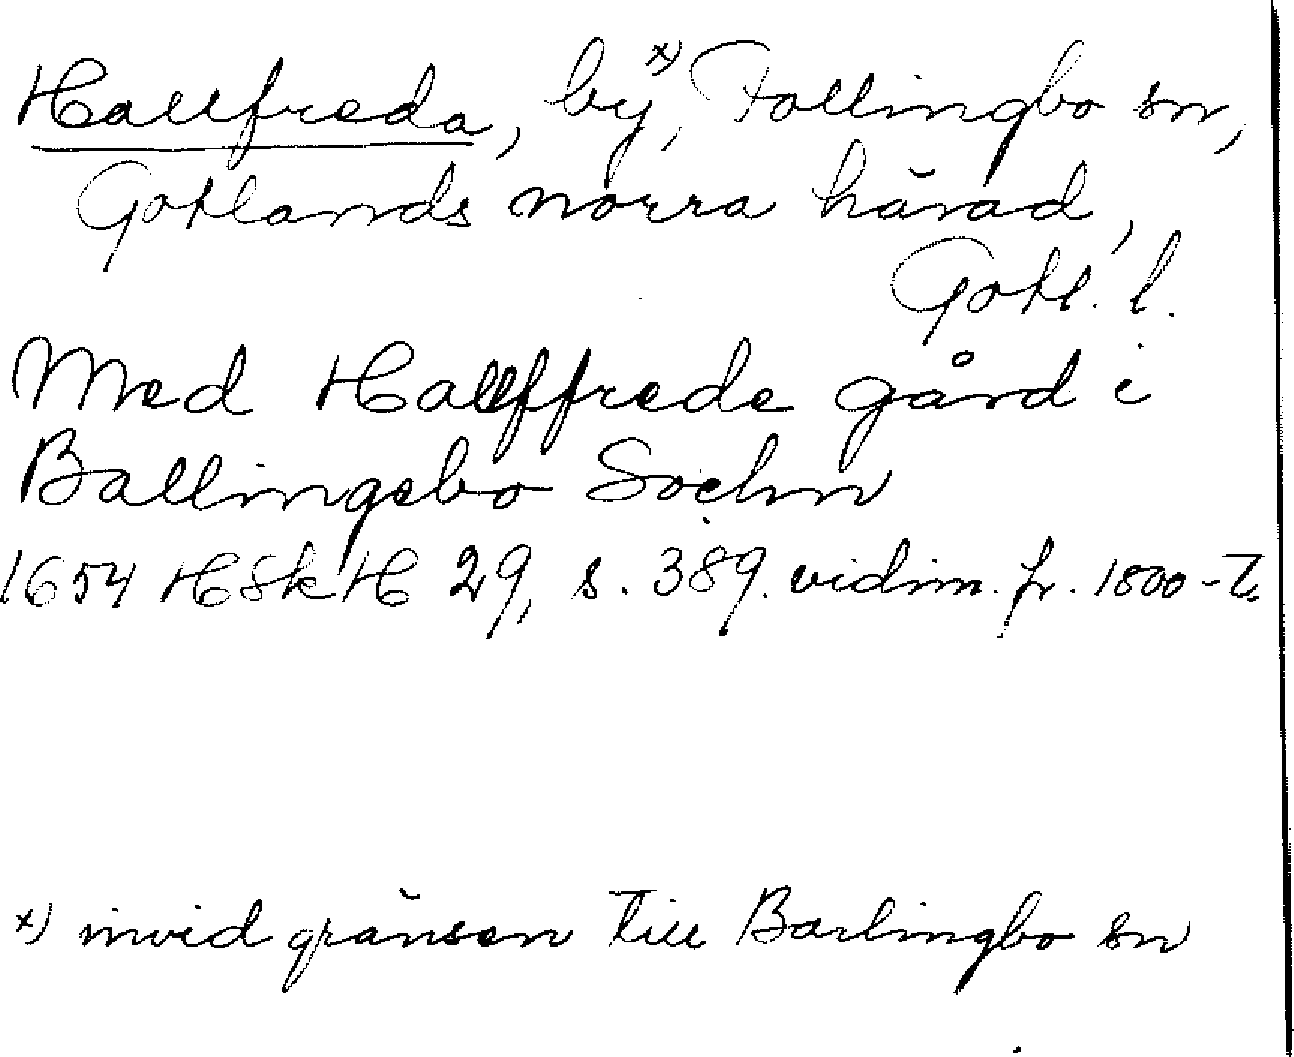 Hallfreda, by x), Follingbo sn,
Gotlands norra härad,
Gotl. l.
Med Hallffrede gård i
Ballingebo Sochn
1654 HSkH 29, s. 389. vidim. fr. 1800-t.
x) invid gränsen till Barlingbo sn